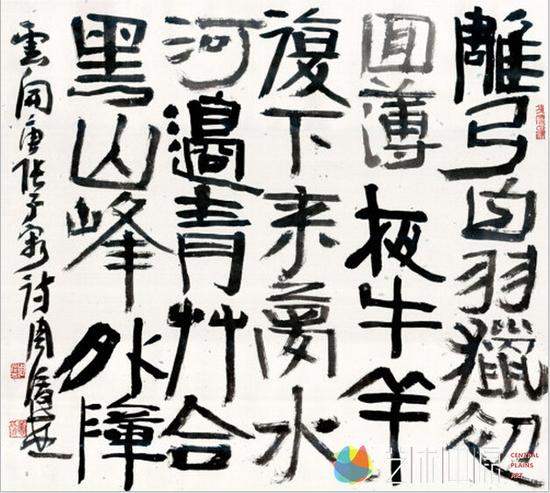 雕弓白羽獵初
回薄夜牛羊
復下來夢水
河邊青艸合
黑山峰外陣
雲開唐張子容詩周俊杰
艺术中原
CENTRAL
PLAINS
ART